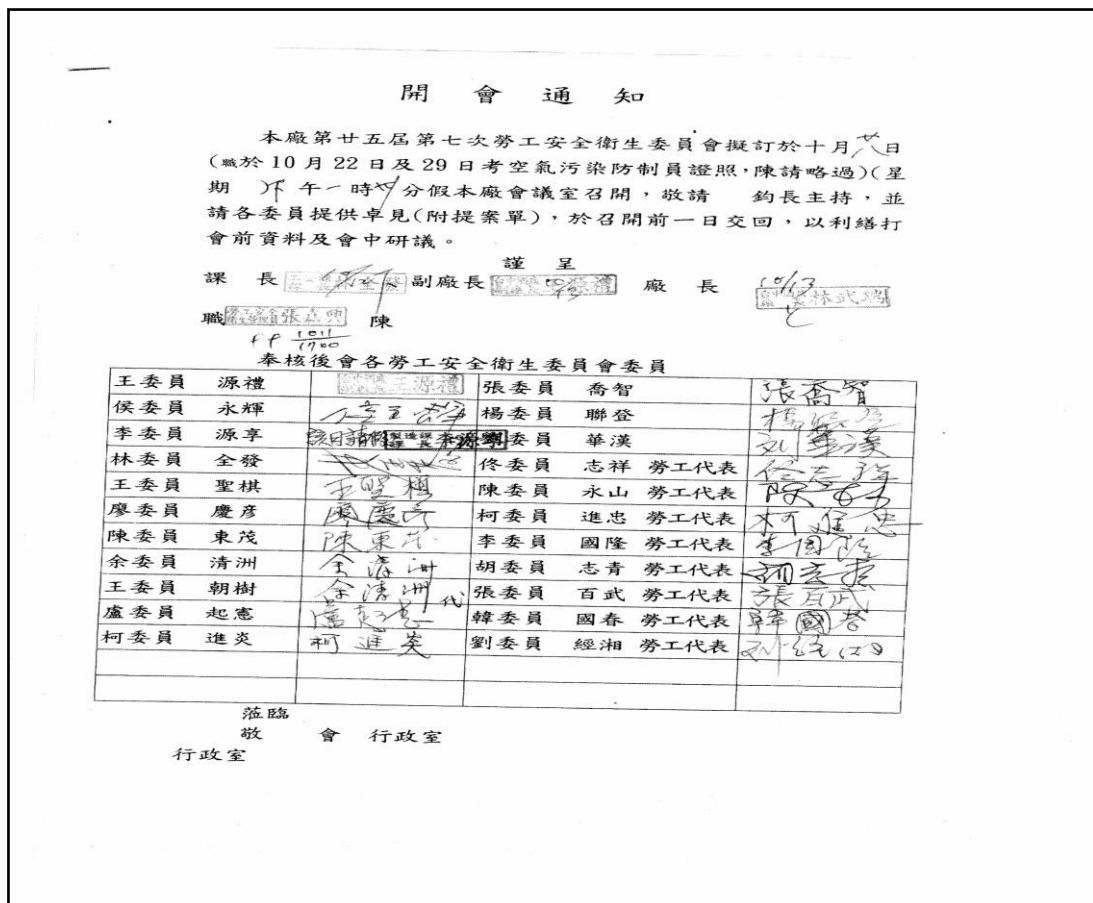 開會通知
本廠第廿五屆第七次勞工安全衛生委員會擬訂於十月廿八日
(職於10月22日及29日考空氣污染防制員證照，陳請略過)(星
期 )下午一時 分假本廠會議室召開，敬請 鈞長主持，並
請各委員提供卓見(附提案單)，於召開前一日交回，以利繕打
會前資料及會中研議。
謹呈
課長 副廠長 廠長 10/13 林武瑞
職 勞工安全衛生管理員 張嘉興 陳
1011
1700
奉核後會各勞工安全衛生委員會委員
王委員 源禮 王源禮 張委員 喬智 張喬智
侯委員 永輝 楊委員 聯登 楊聯登
李委員 源享 該日請假 製造課課長 李源享 劉委員 華漢 刘華漢
林委員 全發 佟委員 志祥 勞工代表 佟志祥
王委員 聖棋 王聖棋 陳委員 永山 勞工代表
廖委員 慶彦 廖慶彦 柯委員 進忠 勞工代表 柯進忠
陳委員 東茂 陳東茂 李委員 國隆 勞工代表 李國隆
余委員 清洲 余清洲 胡委員 志青 勞工代表 胡志青
王委員 朝樹 余清洲代 張委員 百武 勞工代表 張百武
盧委員 起憲 盧起憲 韓委員 國春 勞工代表 韓國春
柯委員 進炎 柯進炎 劉委員 經湘 勞工代表 刘經湘
蒞臨
敬 會 行政室
行政室